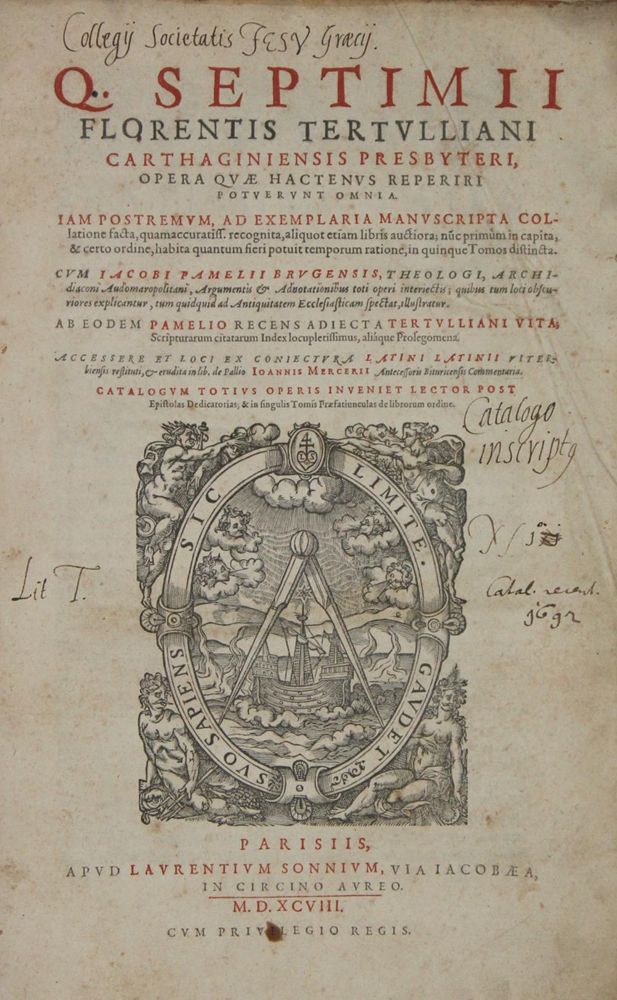 Collegij Societatis JESV Græcij.
Q. SEPTIMII
FLORENTIS TERTVLLIANI
CARTHAGINIENSIS PRESBYTERI,
OPERA QVÆ HACTENVS REPERIRI
POTVERVNT OMNIA.
IAM POSTREMVM, AD EXEMPLARIA MANVSCRIPTA COL-
latione facta, quamaccuratiss. recognita, aliquot etiam libris auctiora; nūc primùm in capita,
& certo ordine, habita quantum fieri potuit temporum ratione, in quinque Tomos distincta.
CVM IACOBI PAMELII BRVGENSIS, THEOLOGI, ARCHI-
diaconi Audomaropolitani, Argumentis & Adnotationibus toti operi interiectis; quibus tum loci obscu-
riores explicantur, tum quidquid ad Antiquitatem Ecclesiasticam spectat, illustratur.
AB EODEM PAMELIO RECENS ADIECTA TERTVLLIANI VITA;
Scripturarum citatarum Index locupletissimus, aliàque Prolegomena.
ACCESSERE ET LOCI EX CONIECTVRA LATINI LATINII VITER-
biensis restituti, & erudita in lib. de Pallio IOANNIS MERCERII Antecessoris Bituricensis Commentaria.
CATALOGVM TOTIVS OPERIS INVENIET LECTOR POST
Epistolas Dedicatorias; & in singulis Tomis Præfatiunculas de librorum ordine.
Catalogo
inscriptꝰ
LS
SIC LIMITE.
SVO SAPIENS GAVDET
Lit T.
Catal. recent.
1692
PARISIIS,
APVD LAVRENTIVM SONNIVM, VIA IACOBÆA,
IN CIRCINO AVREO.
M. D. XCVIII.
CVM PRIVILEGIO REGIS.